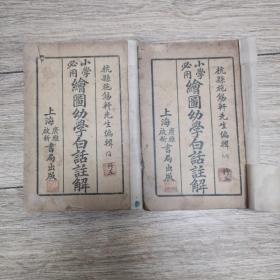 杭縣施錫軒先生編輯
小學必用
繪圖幼學白話註解
上海
廣雅
啟新
書局出版
杭縣施錫軒先生編輯
小學必用
繪圖幼學白話註解
上海
廣雅
啟新
書局出版